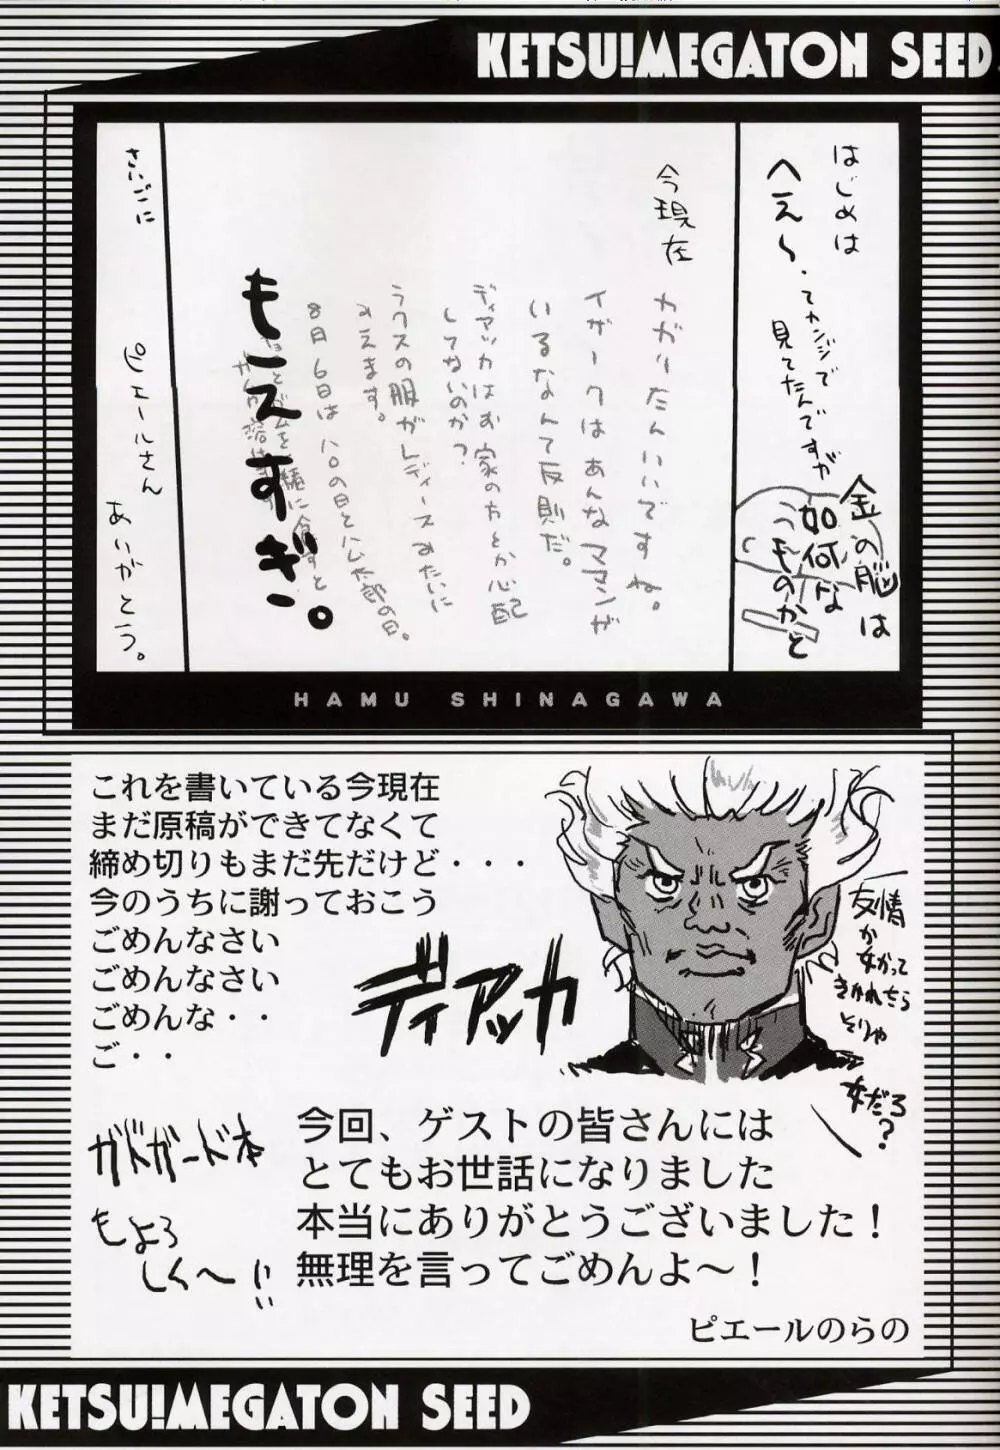 KETSU!MEGATON SEED
はじめは
へえ〜、てカンジで
見てたんですが
金の脳は
如何な
ものかと
今現在
カガリたんいいですね。
イザークはあんなママンが
いるなんて反則だ。
ディアッカはお家の方とか心配
してないのか?
ラクスの服がレディースみたいに
みえます。
8月6日はハロの日とハム太郎の日。
もえすぎ。
さいごに
ピエールさん
ありがとう。
HAMU SHINAGAWA
これを書いている今現在
まだ原稿ができてなくて
締め切りもまだ先だけど・・・
今のうちに謝っておこう
ごめんなさい
ごめんなさい
ごめんな・・
ご・・
ディアッカ
友情
か女かって
きかれたら
そりゃ
女だろ?
ガドガード本
もよろ
しく〜!!
今回、ゲストの皆さんには
とてもお世話になりました
本当にありがとうございました!
無理を言ってごめんよ〜!
ピエールのらの
KETSU!MEGATON SEED